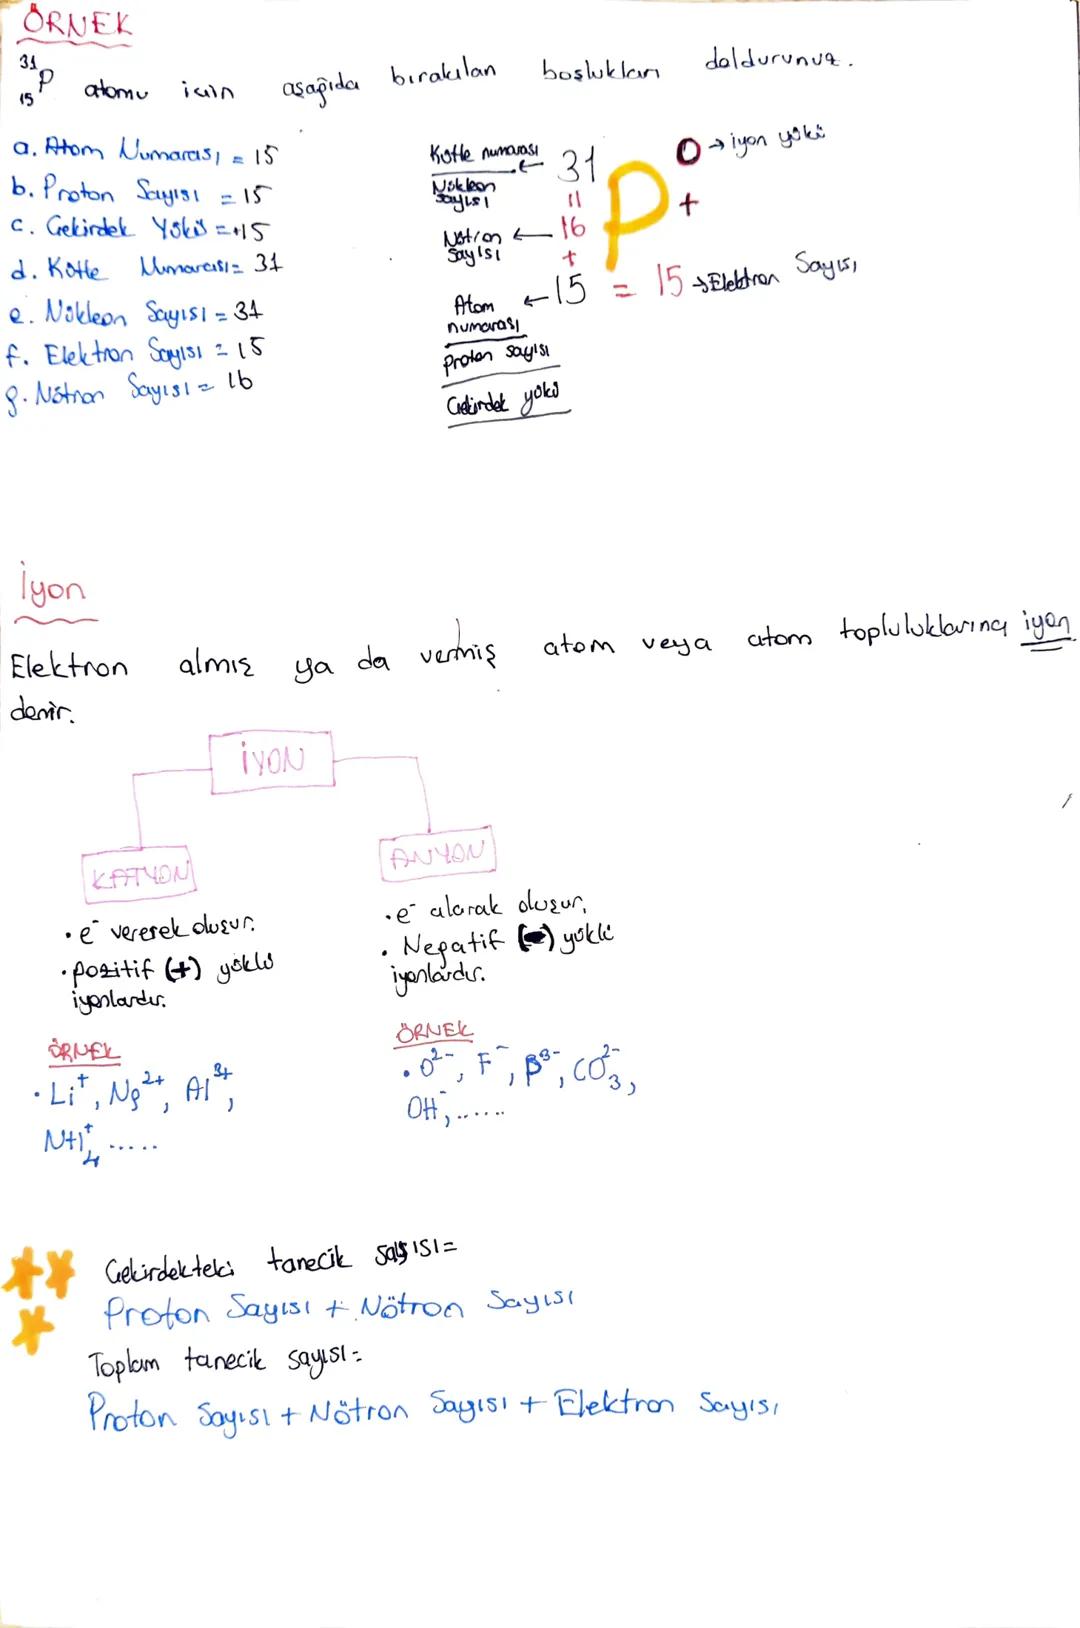 ÖRNEK
31
15 P atomu için aşağıda bırakılan boşlukları doldurunuz.
a. Atom Numarası = 15
b. Proton Sayısı = 15
c. Çekirdek Yükü = +15
d. Kütle Numarası = 31
e. Nükleon Sayısı = 31
f. Elektron Sayısı = 15
g. Nötron Sayısı = 16
Kütle numarası ← 31 P 0 → iyon yükü
Nükleon sayısı = +
Nötron sayısı ← 16
+
Atom numarası ← 15 = 15 → Elektron Sayısı
proton sayısı
Çekirdek yükü
İyon
Elektron almış ya da vermiş atom veya atom topluluklarına iyon
denir.
İYON
KATYON
ANYON
• e⁻ vererek oluşur.
• pozitif (+) yüklü
iyonlardır.
ÖRNEK
• Li⁺, Ng²⁺, Al³⁺,
NH₄⁺, .....
• e⁻ alarak oluşur.
• Negatif (-) yüklü
iyonlardır.
ÖRNEK
• O²⁻, F⁻, P³⁻, CO₃²⁻,
OH⁻, ......
Çekirdekteki tanecik sayısı =
Proton Sayısı + Nötron Sayısı
Toplam tanecik sayısı =
Proton Sayısı + Nötron Sayısı + Elektron Sayısı